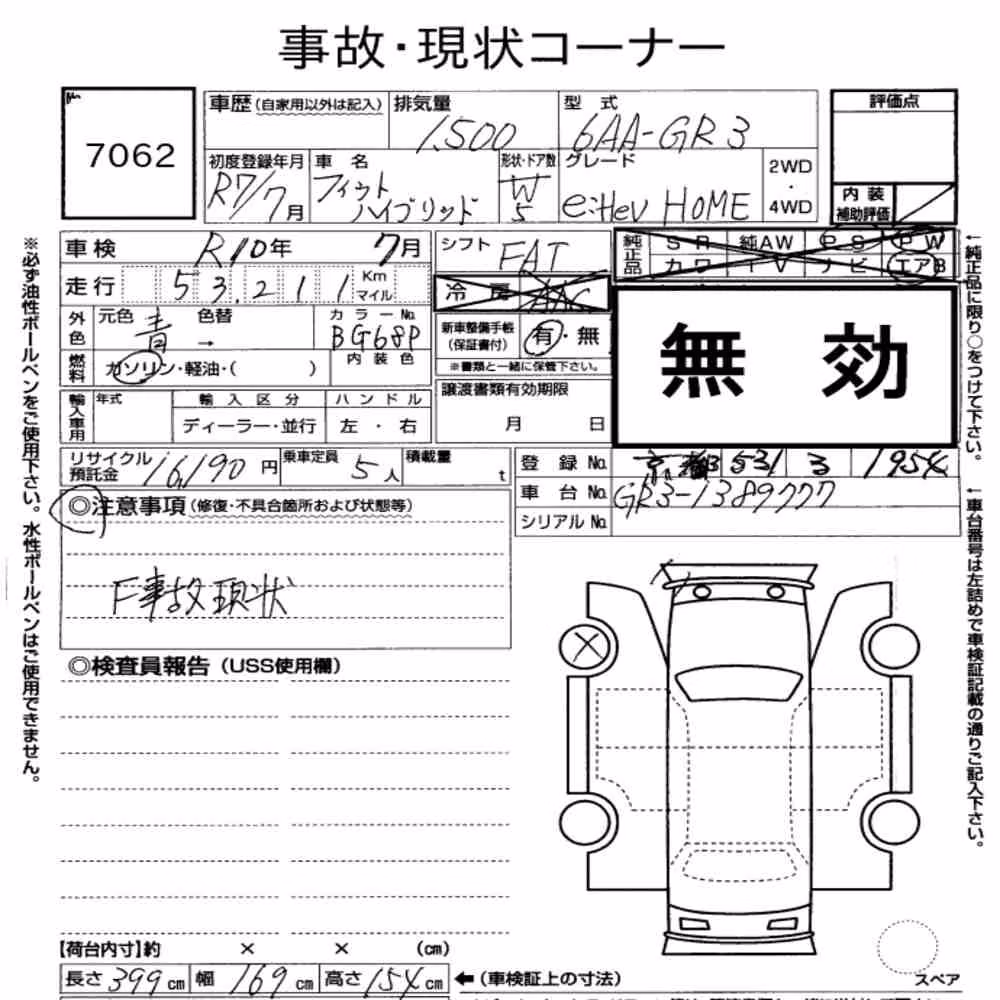 事故・現状コーナー
7062
車歴(自家用以外は記入)
排気量
1,500
型式
6AA-GR3
評価点
初度登録年月
R7/7月
車名
フィット
ハイブリッド
形状・ドア数
W
5
グレード
e:HeV HOME
2WD
・
4WD
内装
補助評価
車検 R10年 7月
シフト FAT
純正品
SR 純AW PS PW
カワ TV ナビ エアB
走行 53,211 Km マイル
冷房 AAC
外色
元色 青 → 色替
カラーNo. BG68P
新車整備手帳
(保証書付)
有・無
※書類と一緒に保管下さい。
無効
燃料
ガソリン・軽油・( )
内装色
輸入車用
年式
輸入区分
ディーラー・並行
ハンドル
左・右
譲渡書類有効期限
月 日
リサイクル
預託金 16,190円
乗車定員 5人
積載量 t
登録No. 京都 531 る 1954
車台No. GR3-1389777
シリアルNo.
◎注意事項(修復・不具合箇所および状態等)
F事故現状
◎検査員報告(USS使用欄)
【荷台内寸】約 × × (cm)
長さ 399cm 幅 169cm 高さ 154cm
←(車検証上の寸法)
スペア
※必ず油性ボールペンをご使用下さい。水性ボールペンはご使用できません。
←純正品に限り○をつけて下さい。
←車台番号は左詰めで車検証記載の通りご記入下さい。